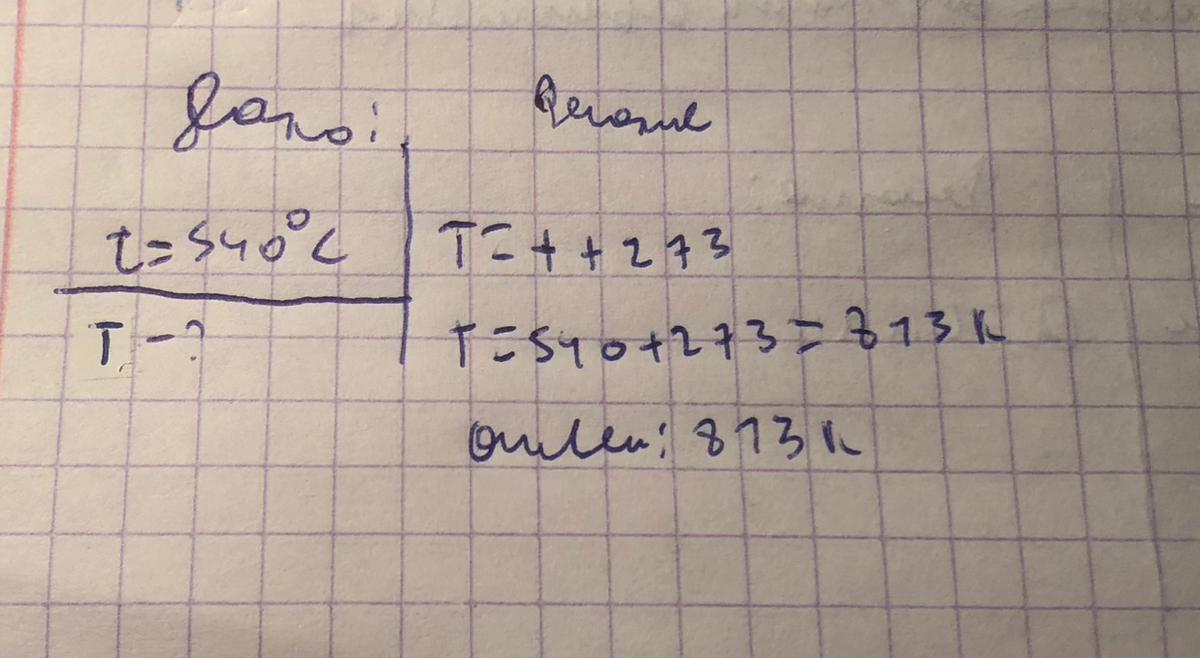 Дано:
Решение
t = 540°C
T = t + 273
T - ?
T = 540 + 273 = 813 К
Ответ: 813 К